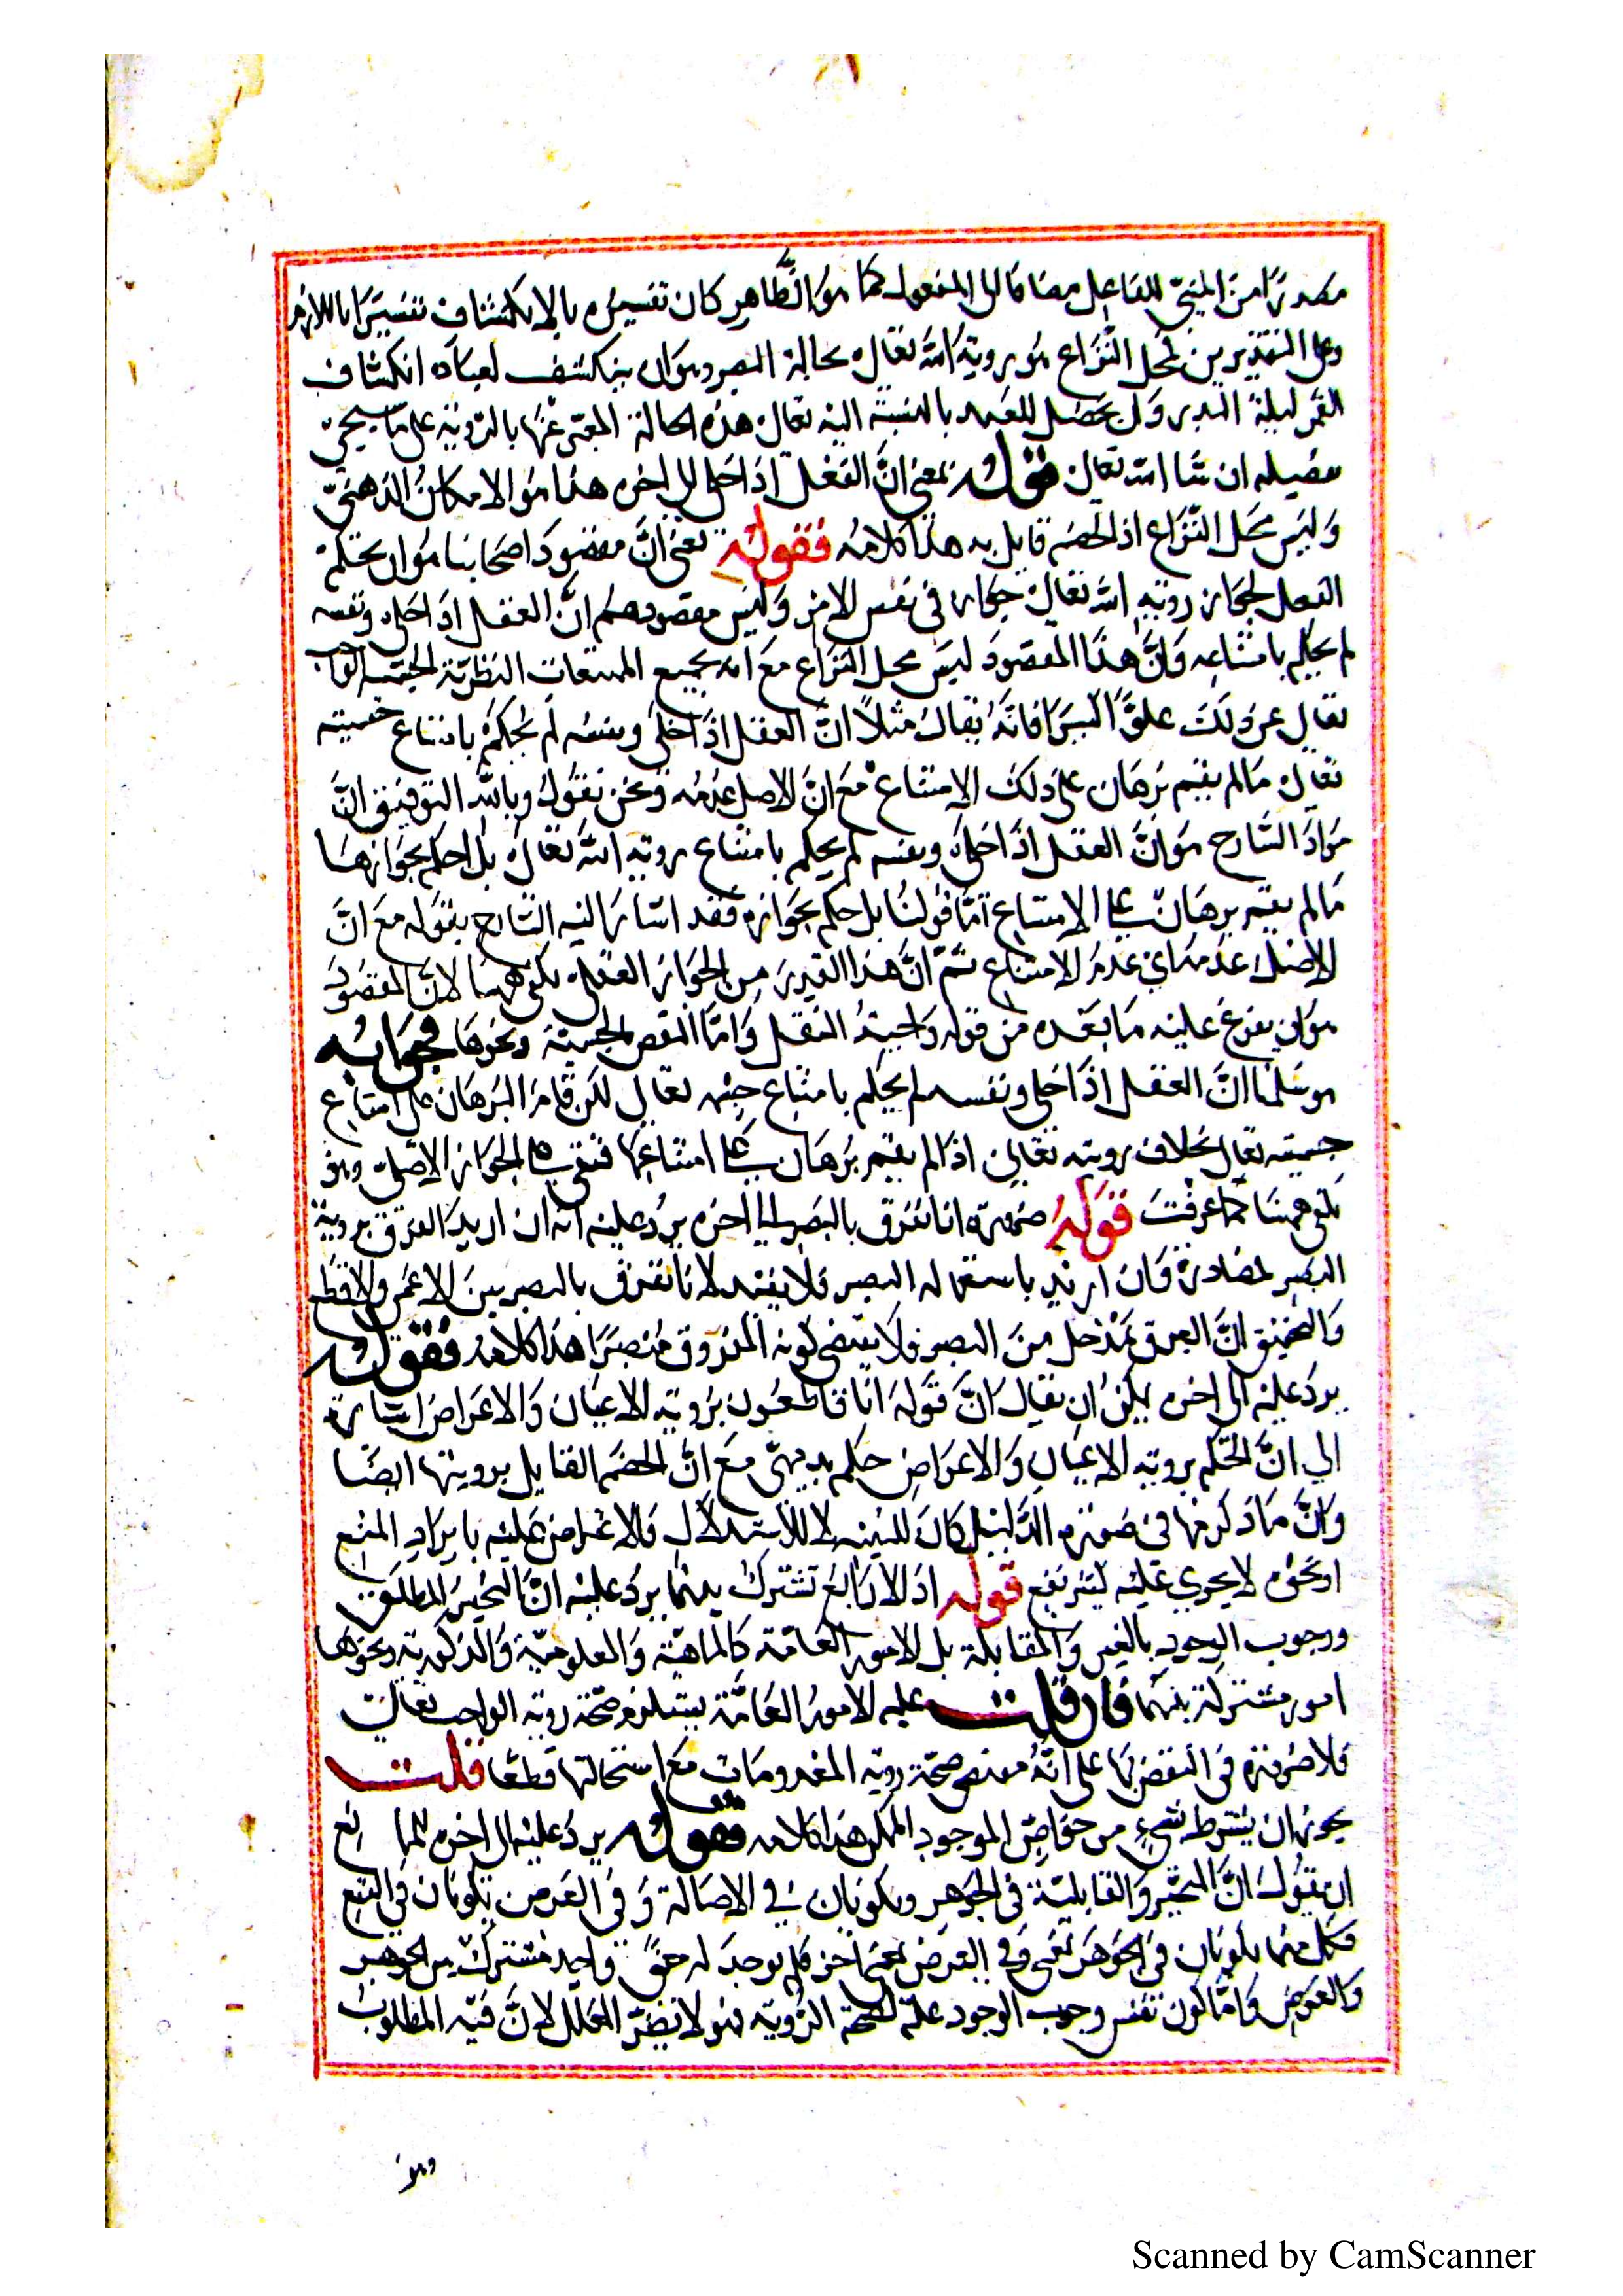 مصدرا من المبني للفاعل مضافا الى المفعول كما هو الظاهر كان تفسيره بالانكشاف تفسيرا باللازم
وعلى التقديرين محل النزاع هو روية الله تعالى بحالة البصر وهو ان ينكشف لعباده انكشاف
القمر ليلة البدر وان يحصل للعبد بالنسبة اليه تعالى هذه الحالة المعبر عنها بالروية على ما سيجئ
تفصيله ان شا الله تعالى قوله بمعنى ان العقل اذا خلى الى اخره هذا هو الامكان الذهني
وليس محل النزاع اذ الخصم قايل به هذا كلامه فقوله يعنى ان مقصود اصحابنا هو ان يحكم
العقل بجواز روية الله تعالى جوازا في نفس الامر وليس مقصودهم ان العقل اذا خلى ونفسه
لم يحكم بامتناعه وان هذا المقصود ليس محل النزاع مع انه بجميع الممتنعات النظرية كجسمية الله
تعالى عن ذلك علوا كبيرا فانه يقال مثلا ان العقل اذا خلى ونفسه لم يحكم بامتناع جسميته
تعالى مالم يقم برهان على ذلك الامتناع مع ان الاصل عدمه ونحن نقول وبالله التوفيق ان
مراد الشارح هو ان العقل اذا خلى ونفسه لم يحكم بامتناع روية الله تعالى بل احكم بجوازها
مالم يقم برهان على الامتناع اما قولنا بل حكم بجوازه فقد اشار اليه الشارح بقوله مع ان
الاصل عدمه اي عدم الامتناع ثم ان هذا القدر من الجواز العقلى يكفى ههنا لان المقصود
هو ان يفرع عليه ما بعده من قوله واجيد النقل واما النقض بالجسمية ونحوها فجوابه
هو سلمنا ان العقل اذا خلى ونفسه لم يحكم بامتناع جسميته تعالى لكن قام البرهان على امتناع
جسميته تعالى بخلاف رويته تعالى اذا لم يقم برهان على امتناعها فتبقى على الجواز الاصلى وهو
يكفى ههنا كما عرفت قوله ضرورة انا نفرق بالبصر الى اخره يرد عليه انه ان اريد الفرق بروية
البصر لمصادرة وان اريد باستعماله البصر فلا يفيد لانا نفرق بالبصر بين الاعمى والاقطع
والتحقيق ان الفرق بمدخل من البصر ولا يقتضى كونه المفروق مبصرا هذا كلامه فقوله
يرد عليه الى اخره يمكن ان يقال ان قوله انا قاطعون بروية الاعيان والاعراض اشارة
الي ان الحكم بروية الاعيان والاعراض حكم بديهي مع ان الخصم القايل برويتها ايضا
وان ما ذكرنا في صورة الدليل كان للتنبيه لا للاستدلال فالاعتراض عليه بايراد المنع
او نحوه لا يجري عليه كثير نفع قوله اذ لا رابع تشترك بينهما يرد عليه ان التحيز المطلق
ووجوب الوجود بالغير والمقابلة بل الامور العامة كالماهية والمعلومية والمذكورية ونحوها
امور مشتركة بينهما فان قلت علية الامور العامة يستلزم صحة روية الواجب تعالى
فلا ضرورة في النقض بها على انه مقتضى صحة روية المعدومات مع استحالتها قطعا قلت
يجوز ان يشترط بشئ من خواص الموجود الممكن هذا كلامه فقوله يرد عليه الى اخره للمانع
ان يقول ان التحيز والقابلية في الجوهر ويكونان في الاصالة و في العرض يكونان في التبع
فكل منهما يكونان في الجوهر بمعنى وفي العرض بمعنى اخر فلم يوجد له معنى واحد مشترك بين الجوهر
والعرض واما كون نفس وجوب الوجود علة لصحة الروية فهو لا يضر المعلل لان فيه المطلوب
وهو
Scanned by CamScanner